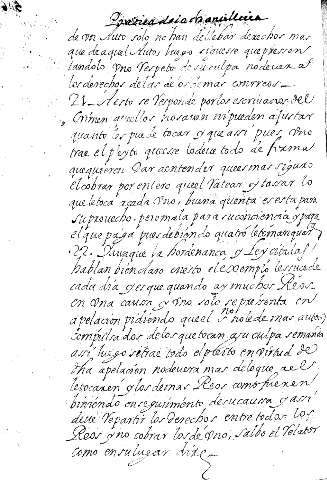 Practica de la chancilleria
de un Auto solo no han de llebar derechos mas
que de aquel Auto y luego siguese que presen
tandolo Uno respeto de su culpa no deuera
los derechos de las de los demas en correos
21 A esto se responde por los escriuanos del
Crimen que ellos no sauen ni pueden ajustar
quanto les puede tocar y que assi pues Uno
trae el pleyto que se lo deue todo de forma
que quieren dar a entender que es mas siguro
el cobrar por entero que el ratear y sacar lo
que le toca a cada Uno, buena quenta es esta para
su prouecho, pero mala para su conciencia y para
el que paga pues debiendo quatro le
22. Aunque la hordenanca y Ley citadas
hablan bien claro en esto el exemplo le
cada dia y es que quando ay muchos Reos
en una causa y Uno solo se presenta en
apelacion pidiendo que el no le de mas autos
compulsados de los que tocan a su culpa se manda
assi, luego se trae todo el pleito en virtud de
dha apelacion no deuera mas de lo que a el
le tocare, y los demas Reos como fueren
biniendo en seguimiento de su causa y assi
deue repartir los derechos entre todos los
Reos y no cobrar los de Uno, salbo el Relator
como en su lugar dire